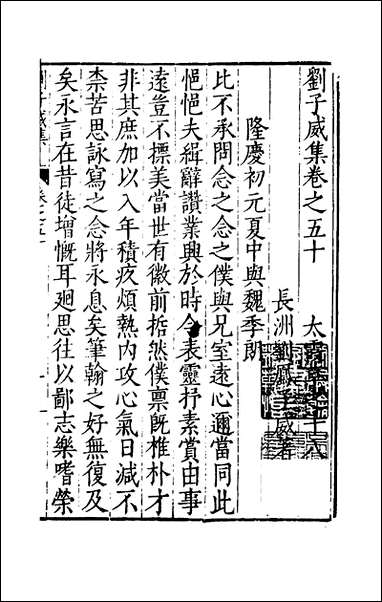 劉子威集卷之五十
長洲劉鳳子威著
隆慶初元夏中與魏季朗
比不承問念之念之僕與兄室遠心邇當同此
悒悒夫緝辭讚業興於時令表靈抒素賞由事
遠豈不摽美當世有徽前哲然僕禀旣椎朴才
非其庶加以入年積疢煩熱内攻心氣日減不
柰苦思詠寫之念將永息矣筆翰之好無復及
矣永言在昔徒增慨耳廻思往以鄙志樂嗜榮